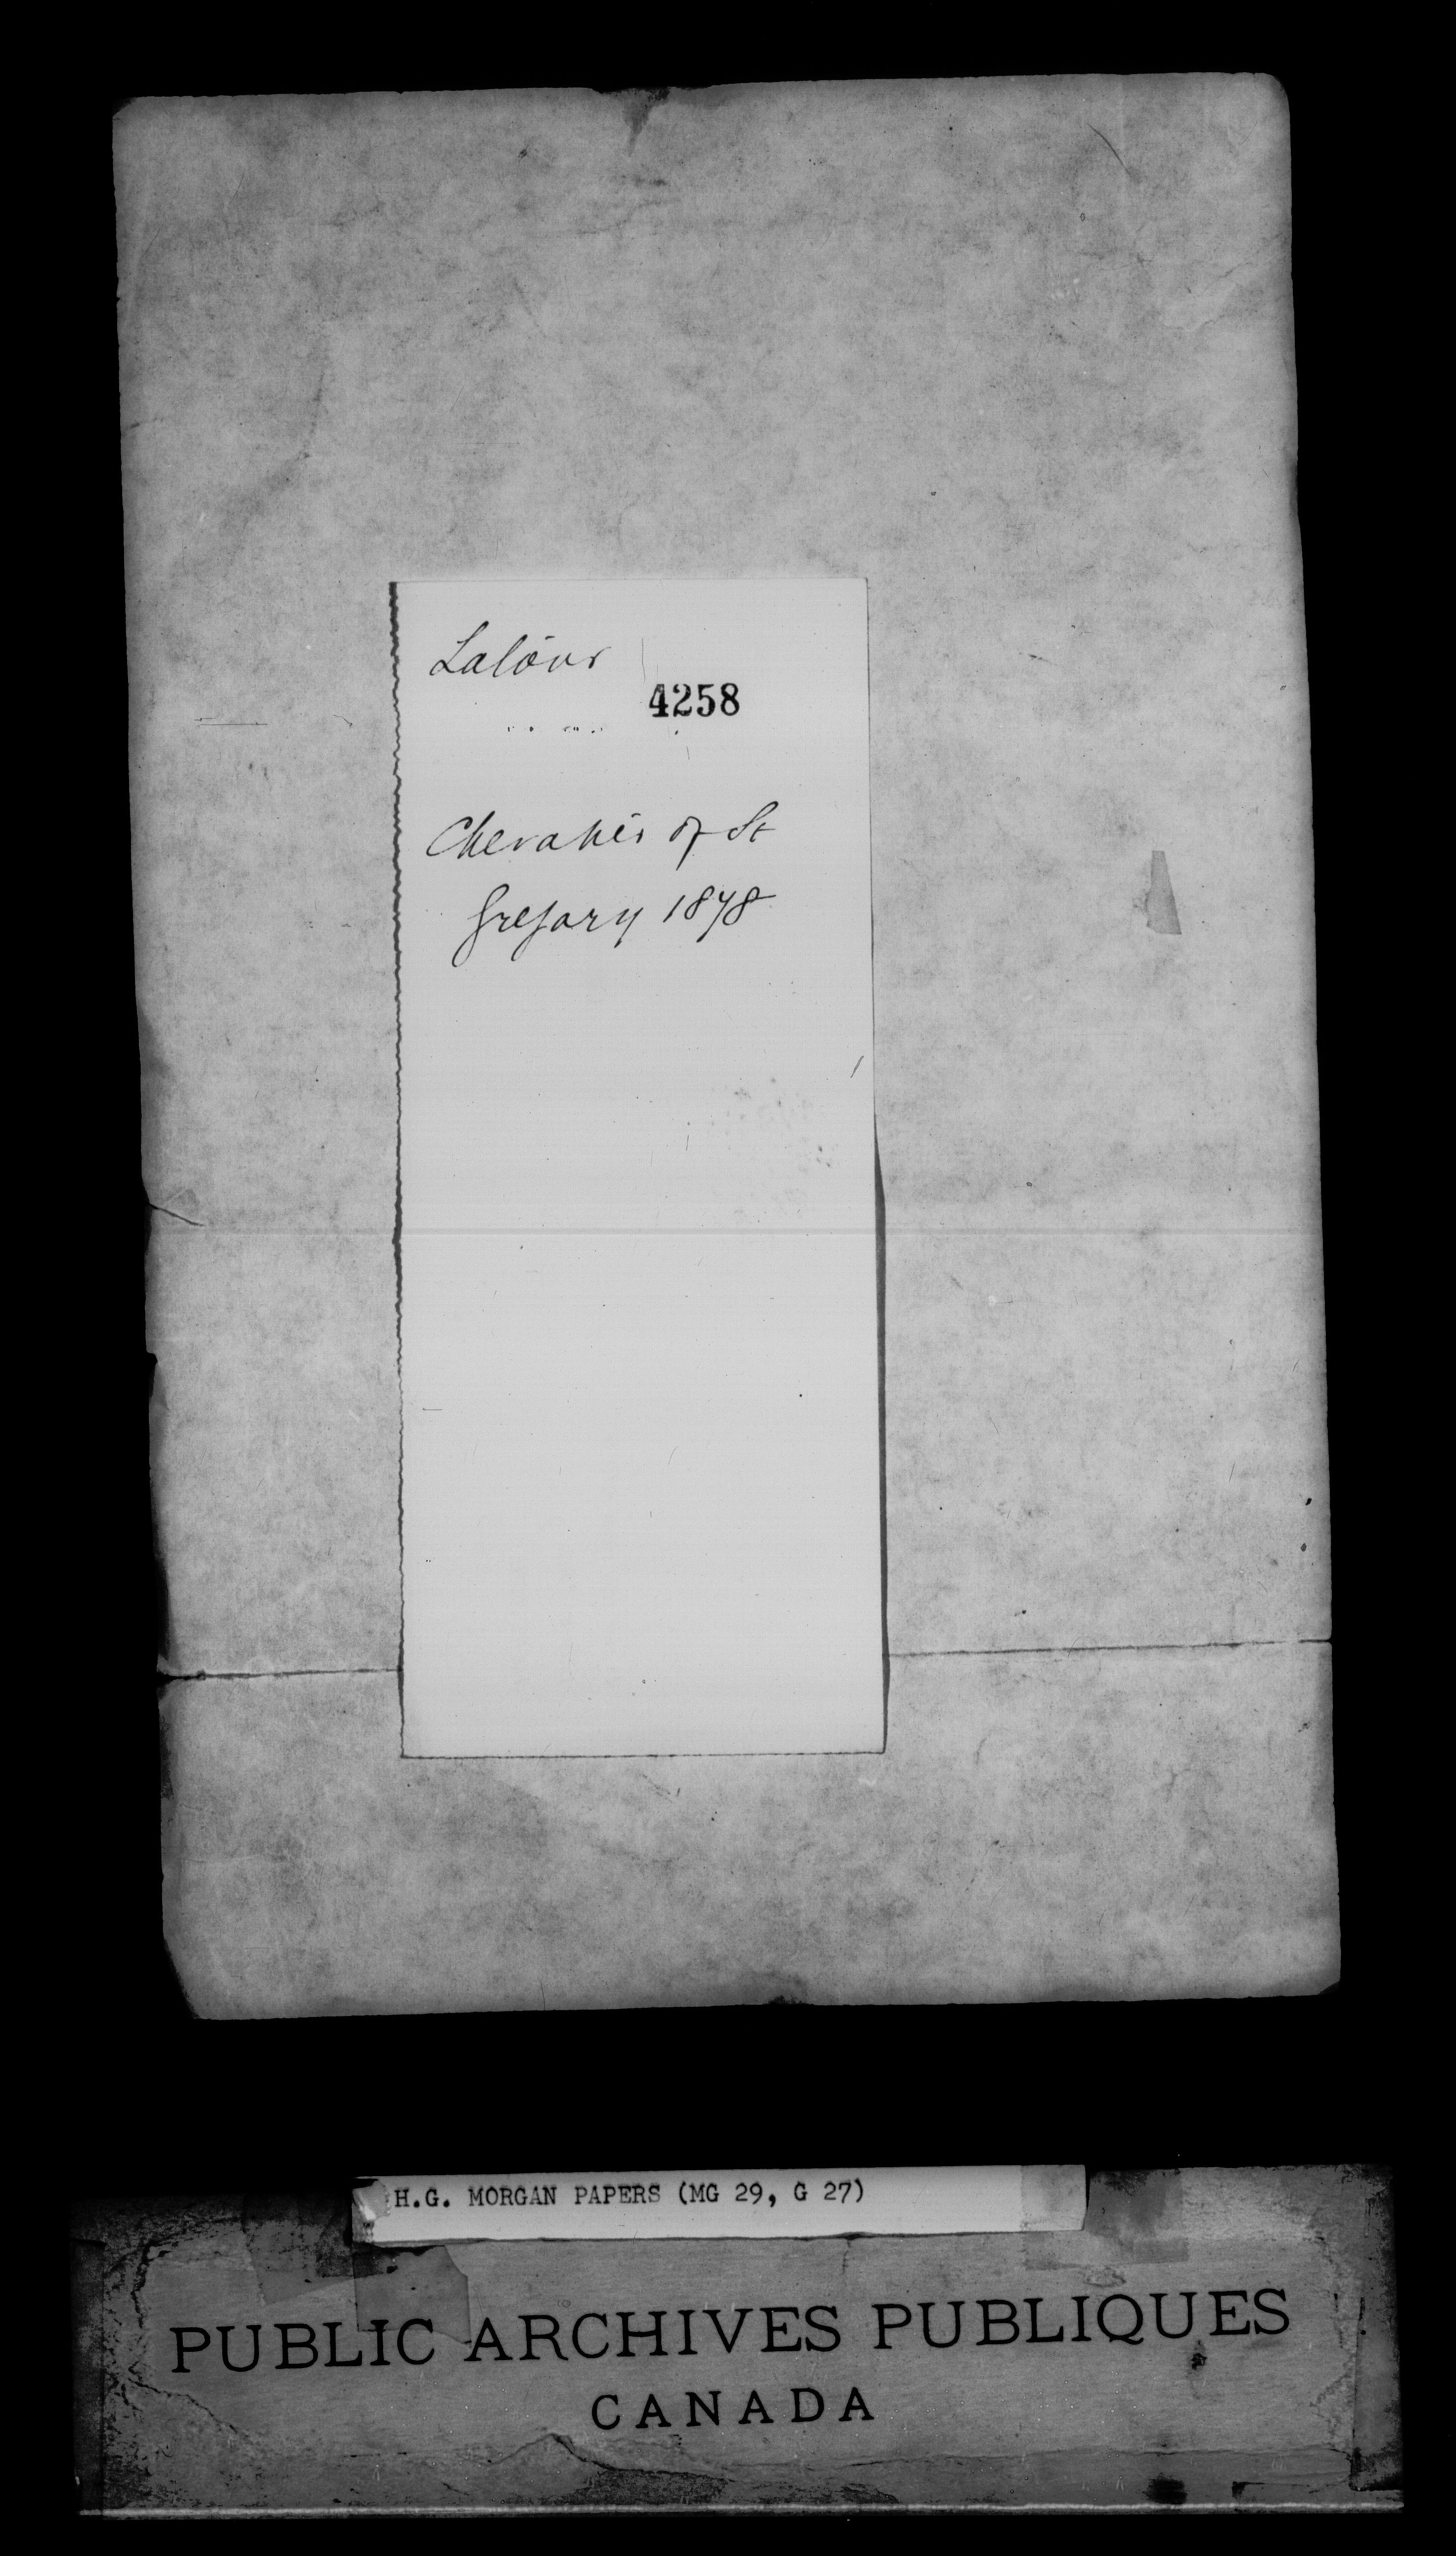 Latour
4258
Chevalier of St
Gregory 1878
H.G. MORGAN PAPERS (MG 29, G 27)
PUBLIC ARCHIVES PUBLIQUES
CANADA